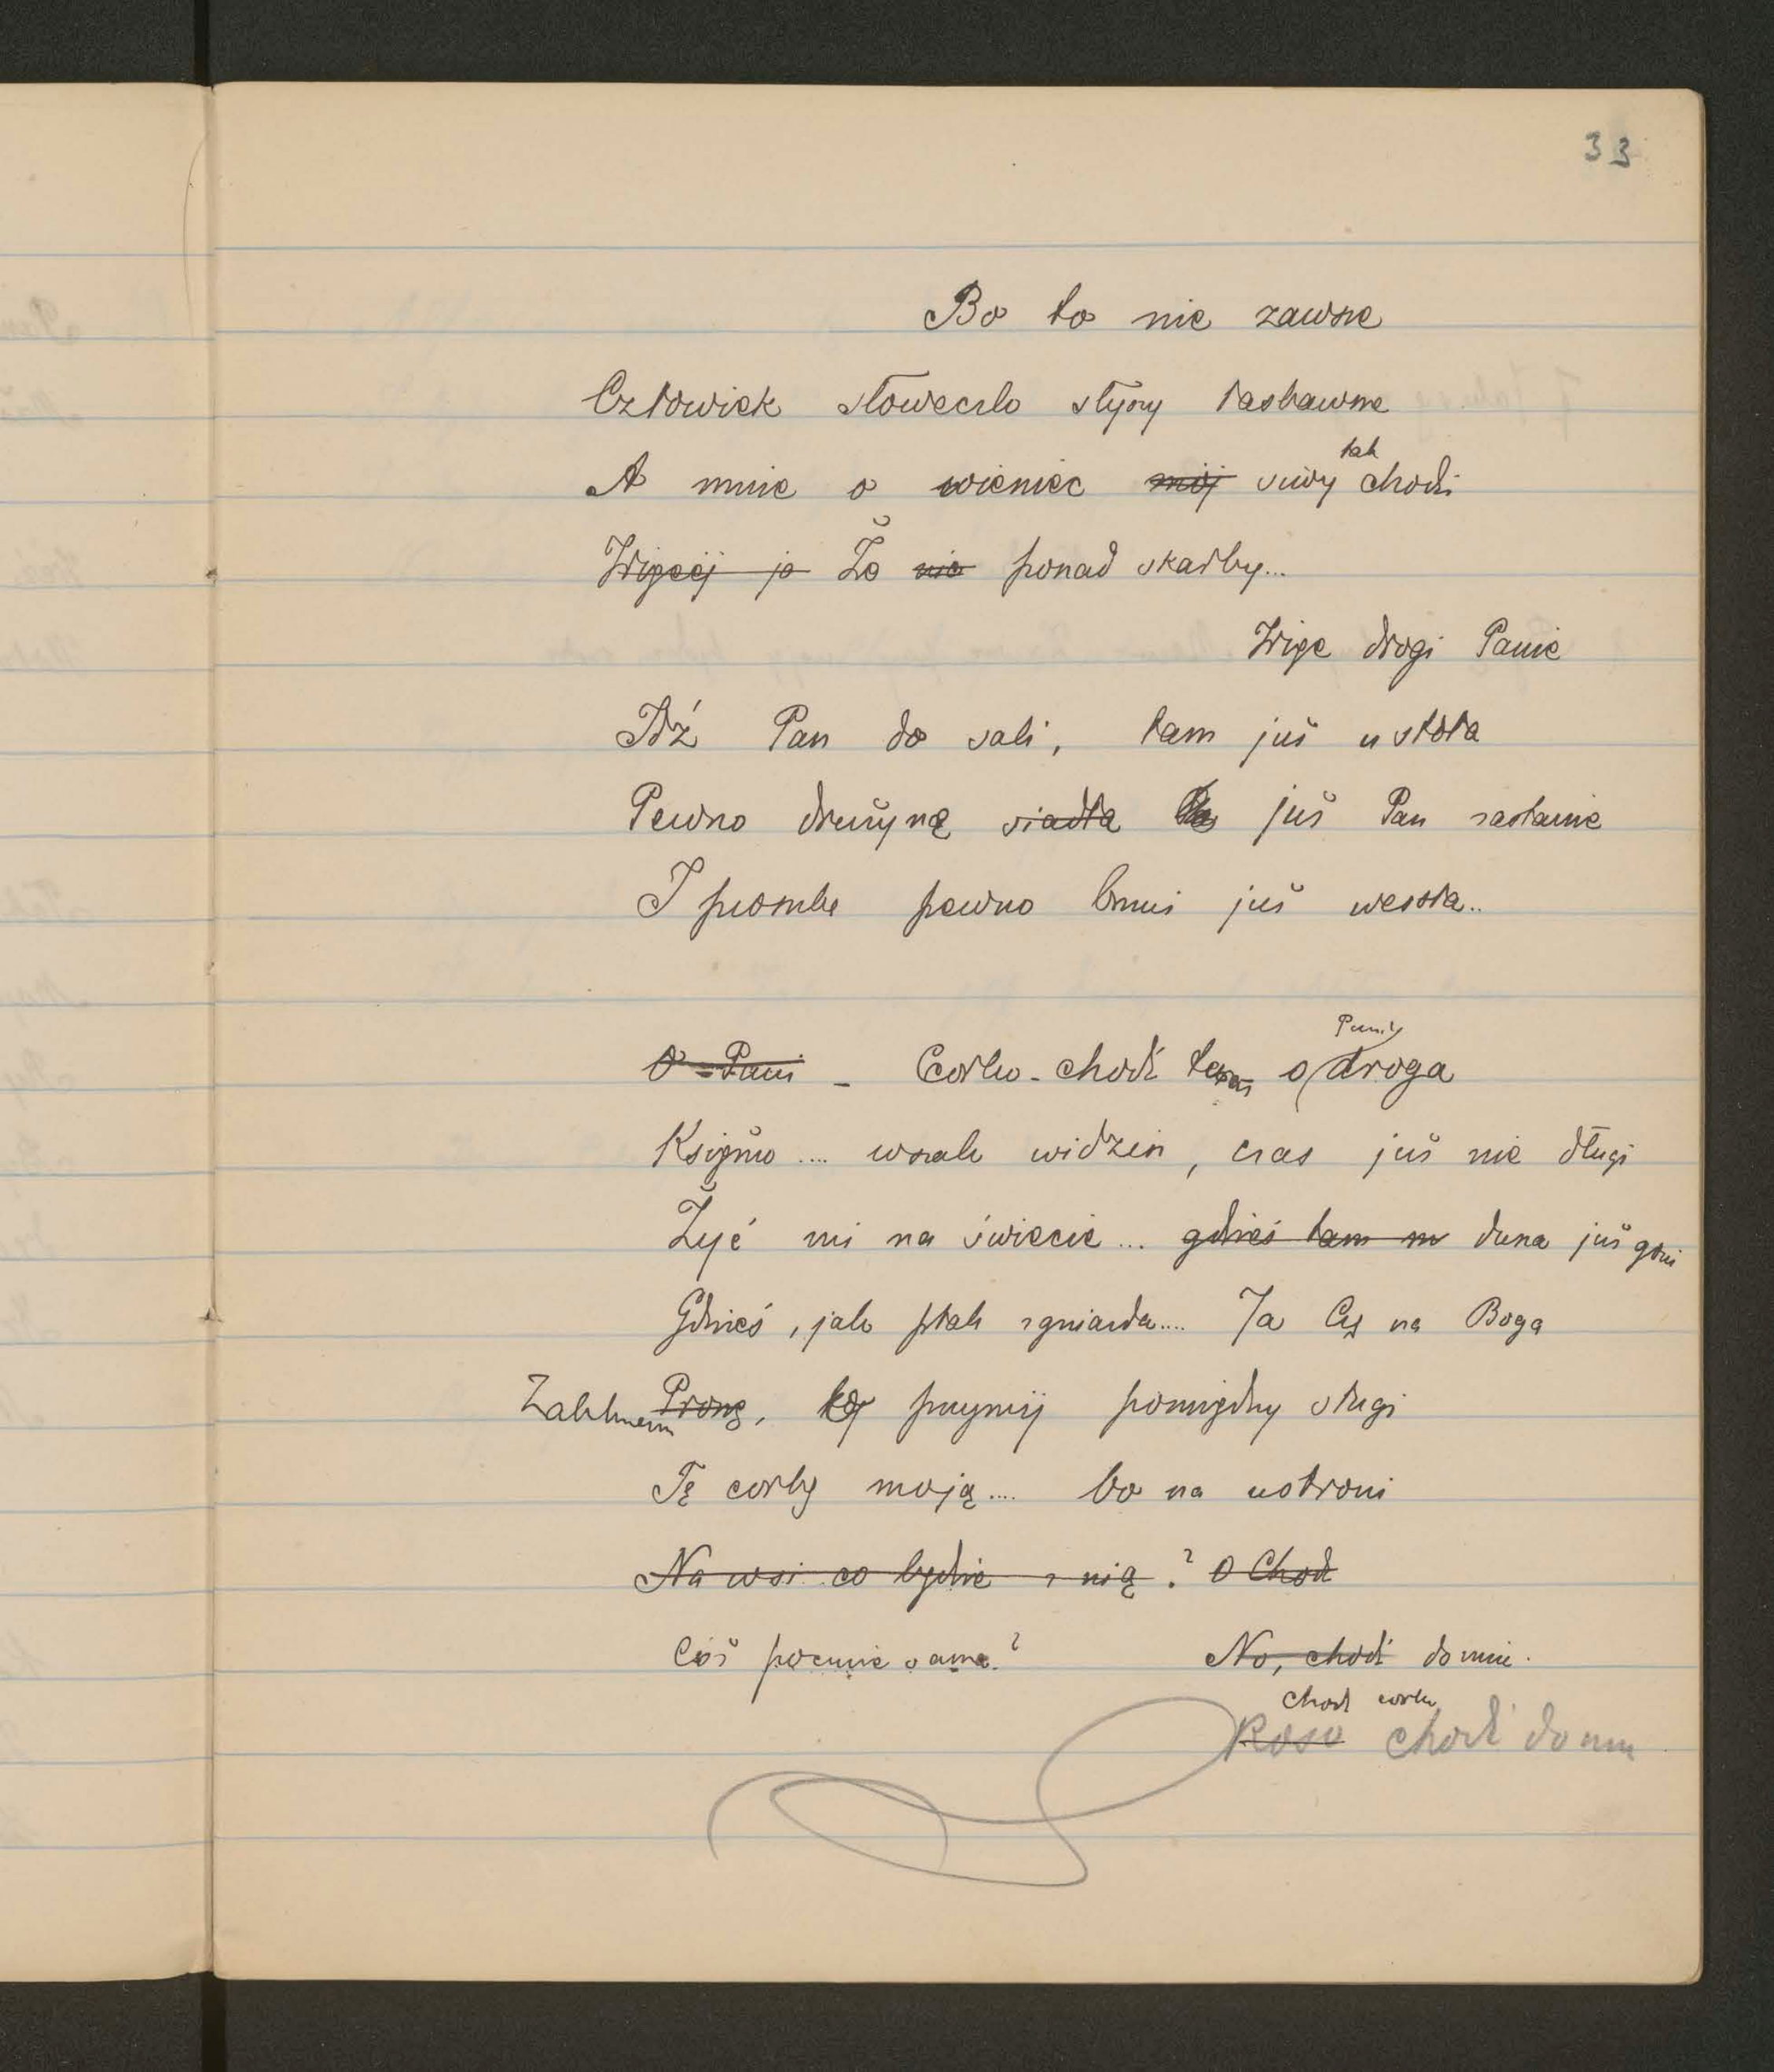 33
Bo to nie zawsze
Człowiek słoweczko słyszy łaskawsze
A mnie o wieniec mój siwy tak chodzi
Więcej jo Że nie ponad skarby...
Więc drogi Panie
Idź Pan do sali, tam już u stoła
Pewno drużynę siadła już Pan zastanie
I piosnka pewno brzmi już wesoła..
O - Pani - Corko - chodź teraz o Pani droga
Księżno .... wszak widzisz, czas już nie długi
Żyć mi na świecie ... gdzieś tam m dusza już goni
Gdzieś, jak ptak z gniazda.... Ja Cię na Boga
Zaklinam Proszę, przyjmij pomiędzy sługi
Tę corkę moją .... bo na ustroni
Na wsi co będzie z nią ? O Chodź
Cóż pocznie sama ? No, chodź do mnie.
Chodź corko
Rozo chodź do mn